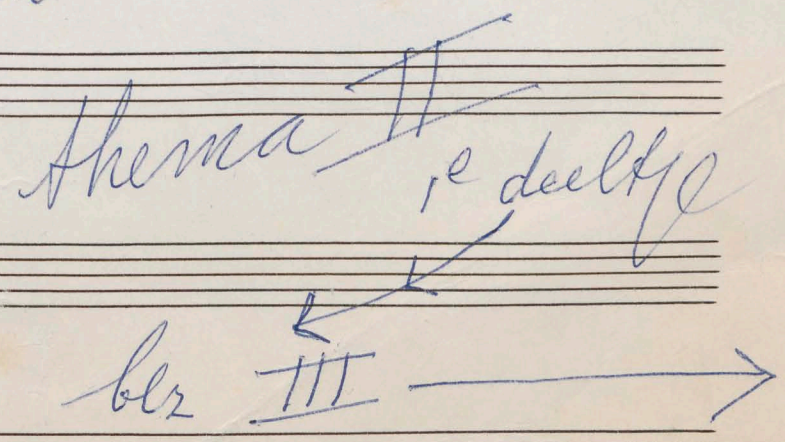 thema II
1e deeltje
blz III